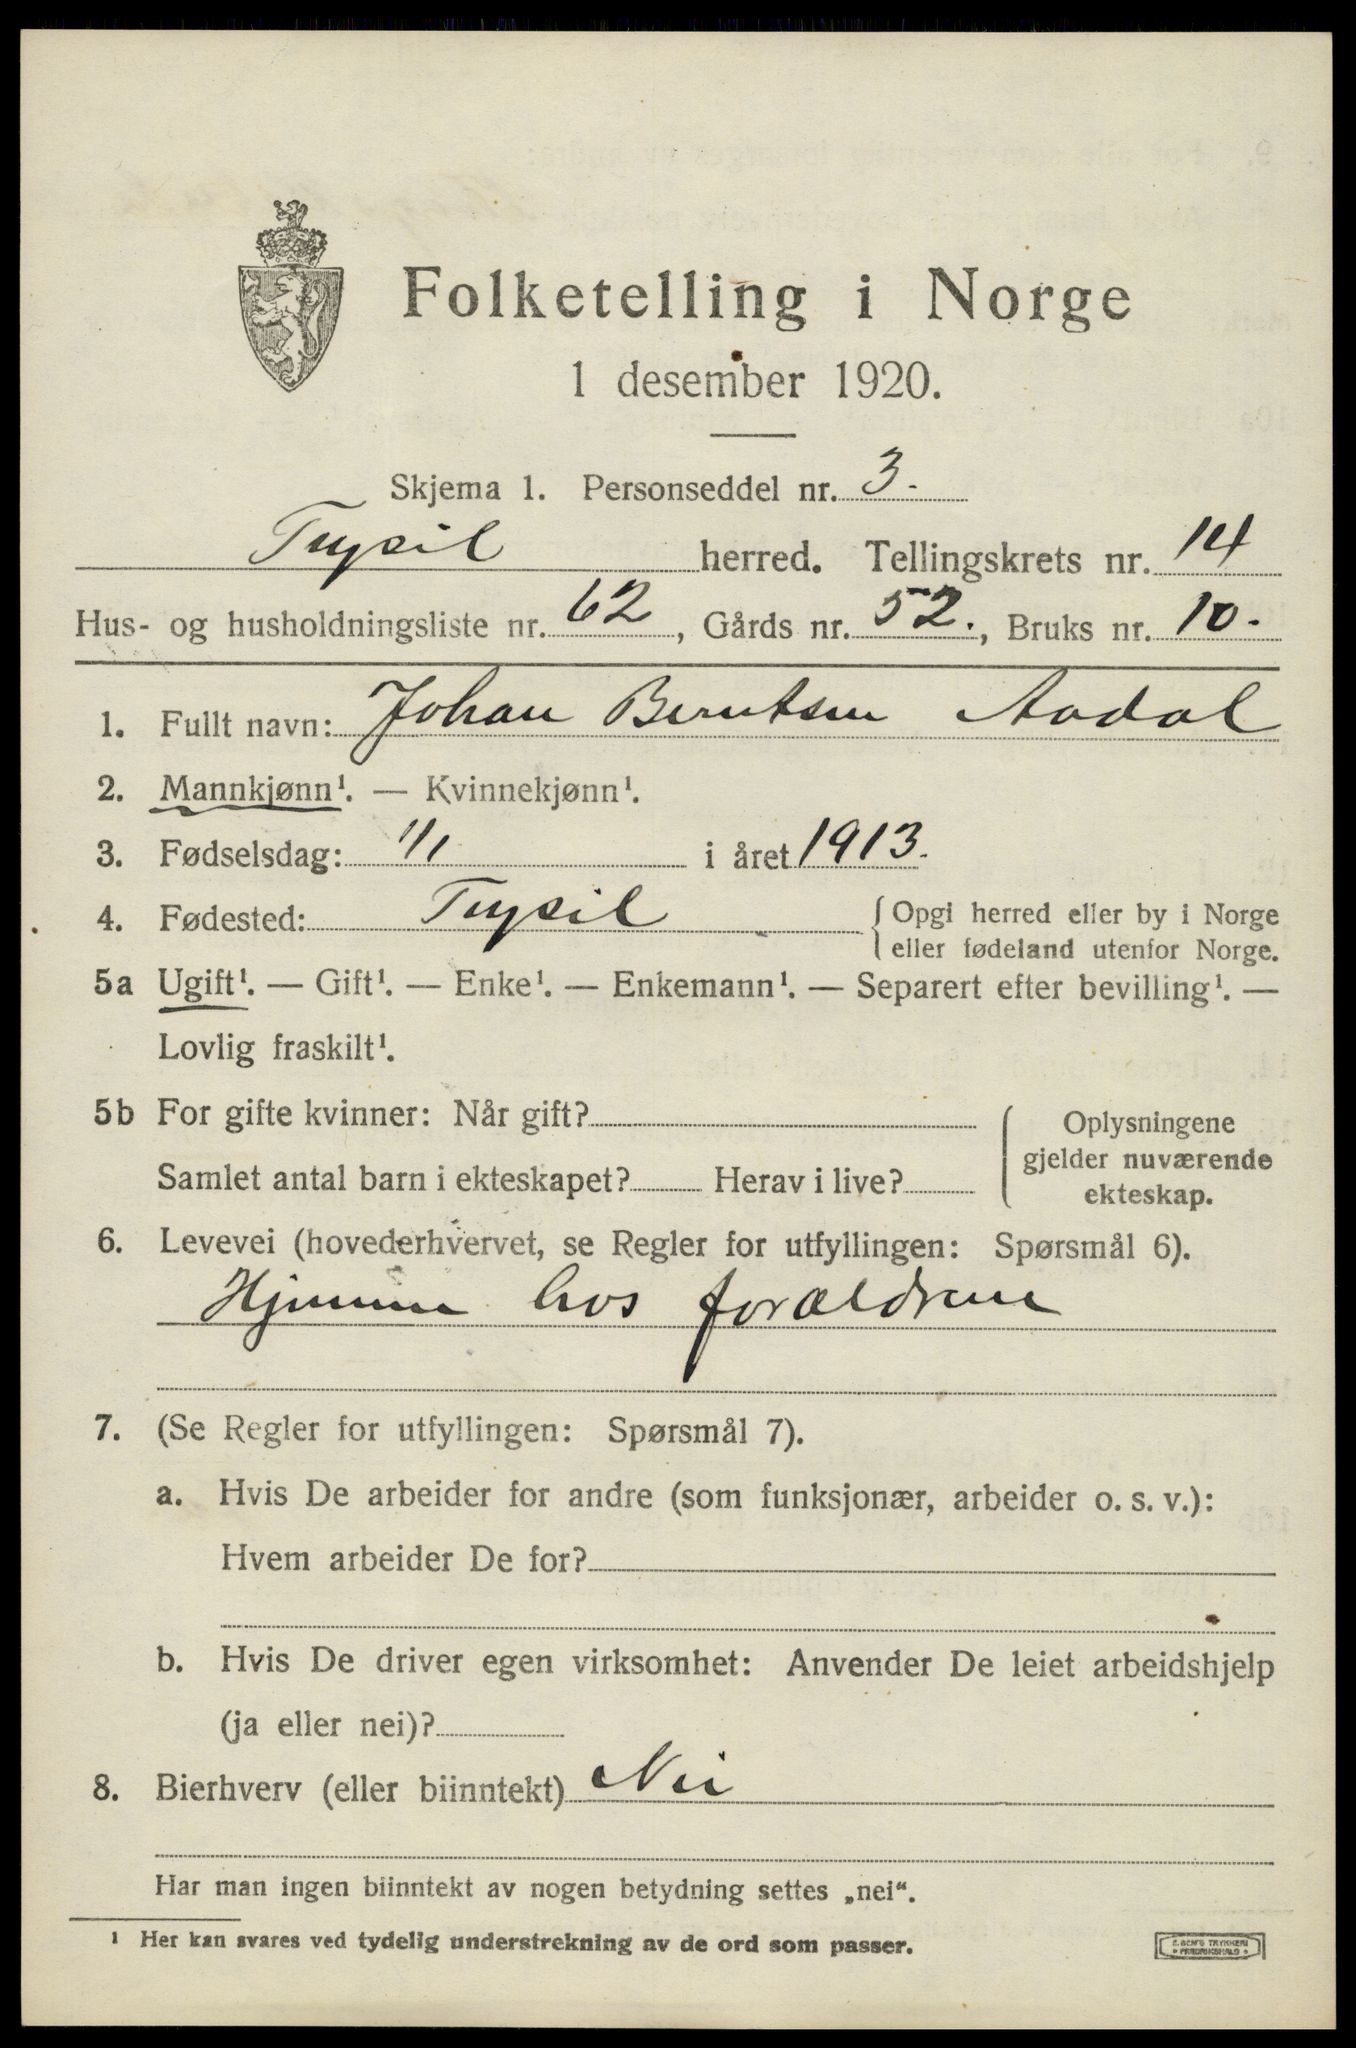 Folketelling i Norge
1 desember 1920.
Skjema 1. Personseddel nr. 3.
Trysil herred. Tellingskrets nr. 14
Hus- og husholdningsliste nr. 62, Gårds nr. 52., Bruks nr. 10.
1. Fullt navn: Johan Berntsen Aadal
2. Mannkjønn¹. — Kvinnekjønn¹.
3. Fødselsdag: 1/1 i året 1913.
4. Fødested: Trysil { Opgi herred eller by i Norge
eller fødeland utenfor Norge.
5a Ugift¹. — Gift¹. — Enke¹. — Enkemann¹. — Separert efter bevilling¹. —
Lovlig fraskilt¹.
5b For gifte kvinner: Når gift? { Oplysningene
gjelder nuværende
ekteskap.
Samlet antal barn i ekteskapet? Herav i live?
6. Levevei (hovederhvervet, se Regler for utfyllingen: Spørsmål 6).
Hjemme hos forældrene
7. (Se Regler for utfyllingen: Spørsmål 7).
a. Hvis De arbeider for andre (som funksjonær, arbeider o. s. v.):
Hvem arbeider De for?
b. Hvis De driver egen virksomhet: Anvender De leiet arbeidshjelp
(ja eller nei)?
8. Bierhverv (eller biinntekt) Nei
Har man ingen biinntekt av nogen betydning settes „nei“.
¹ Her kan svares ved tydelig understrekning av de ord som passer.
E. SEM'S TRYKKERI
FREDRIKSHALD